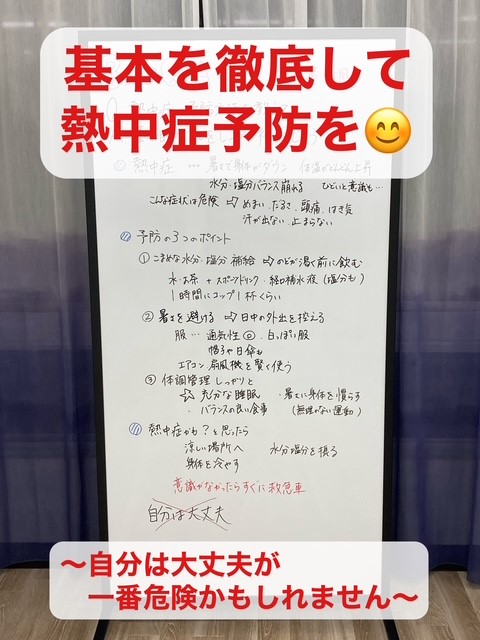 基本を徹底して
熱中症予防を😊
◎ 熱中症 … 暑さで身体がダウン 体温がどんどん上昇
水分・塩分バランス崩れる ひどいと意識も…
こんな症状は危険 ⇨ めまい・だるさ・頭痛・はき気
汗が出ない・止まらない
◎ 予防の3つのポイント
① こまめな水分・塩分補給 ⇨ のどが渇く前に飲む
水・お茶 + スポーツドリンク・経口補水液 (塩分も)
1時間にコップ1杯くらい
② 暑さを避ける ⇨ 日中の外出を控える
服 … 通気性◎ 白っぽい服
帽子や日傘も
エアコン 扇風機を賢く使う
③ 体調管理しっかりと
⇨ 充分な睡眠 ・暑さに身体を慣らす
・バランスの良い食事 (無理がない運動)
◎ 熱中症かも?と思ったら
涼しい場所へ 水分塩分を摂る
身体を冷やす
意識がなかったらすぐに救急車
自分は大丈夫
〜自分は大丈夫が
一番危険かもしれません〜